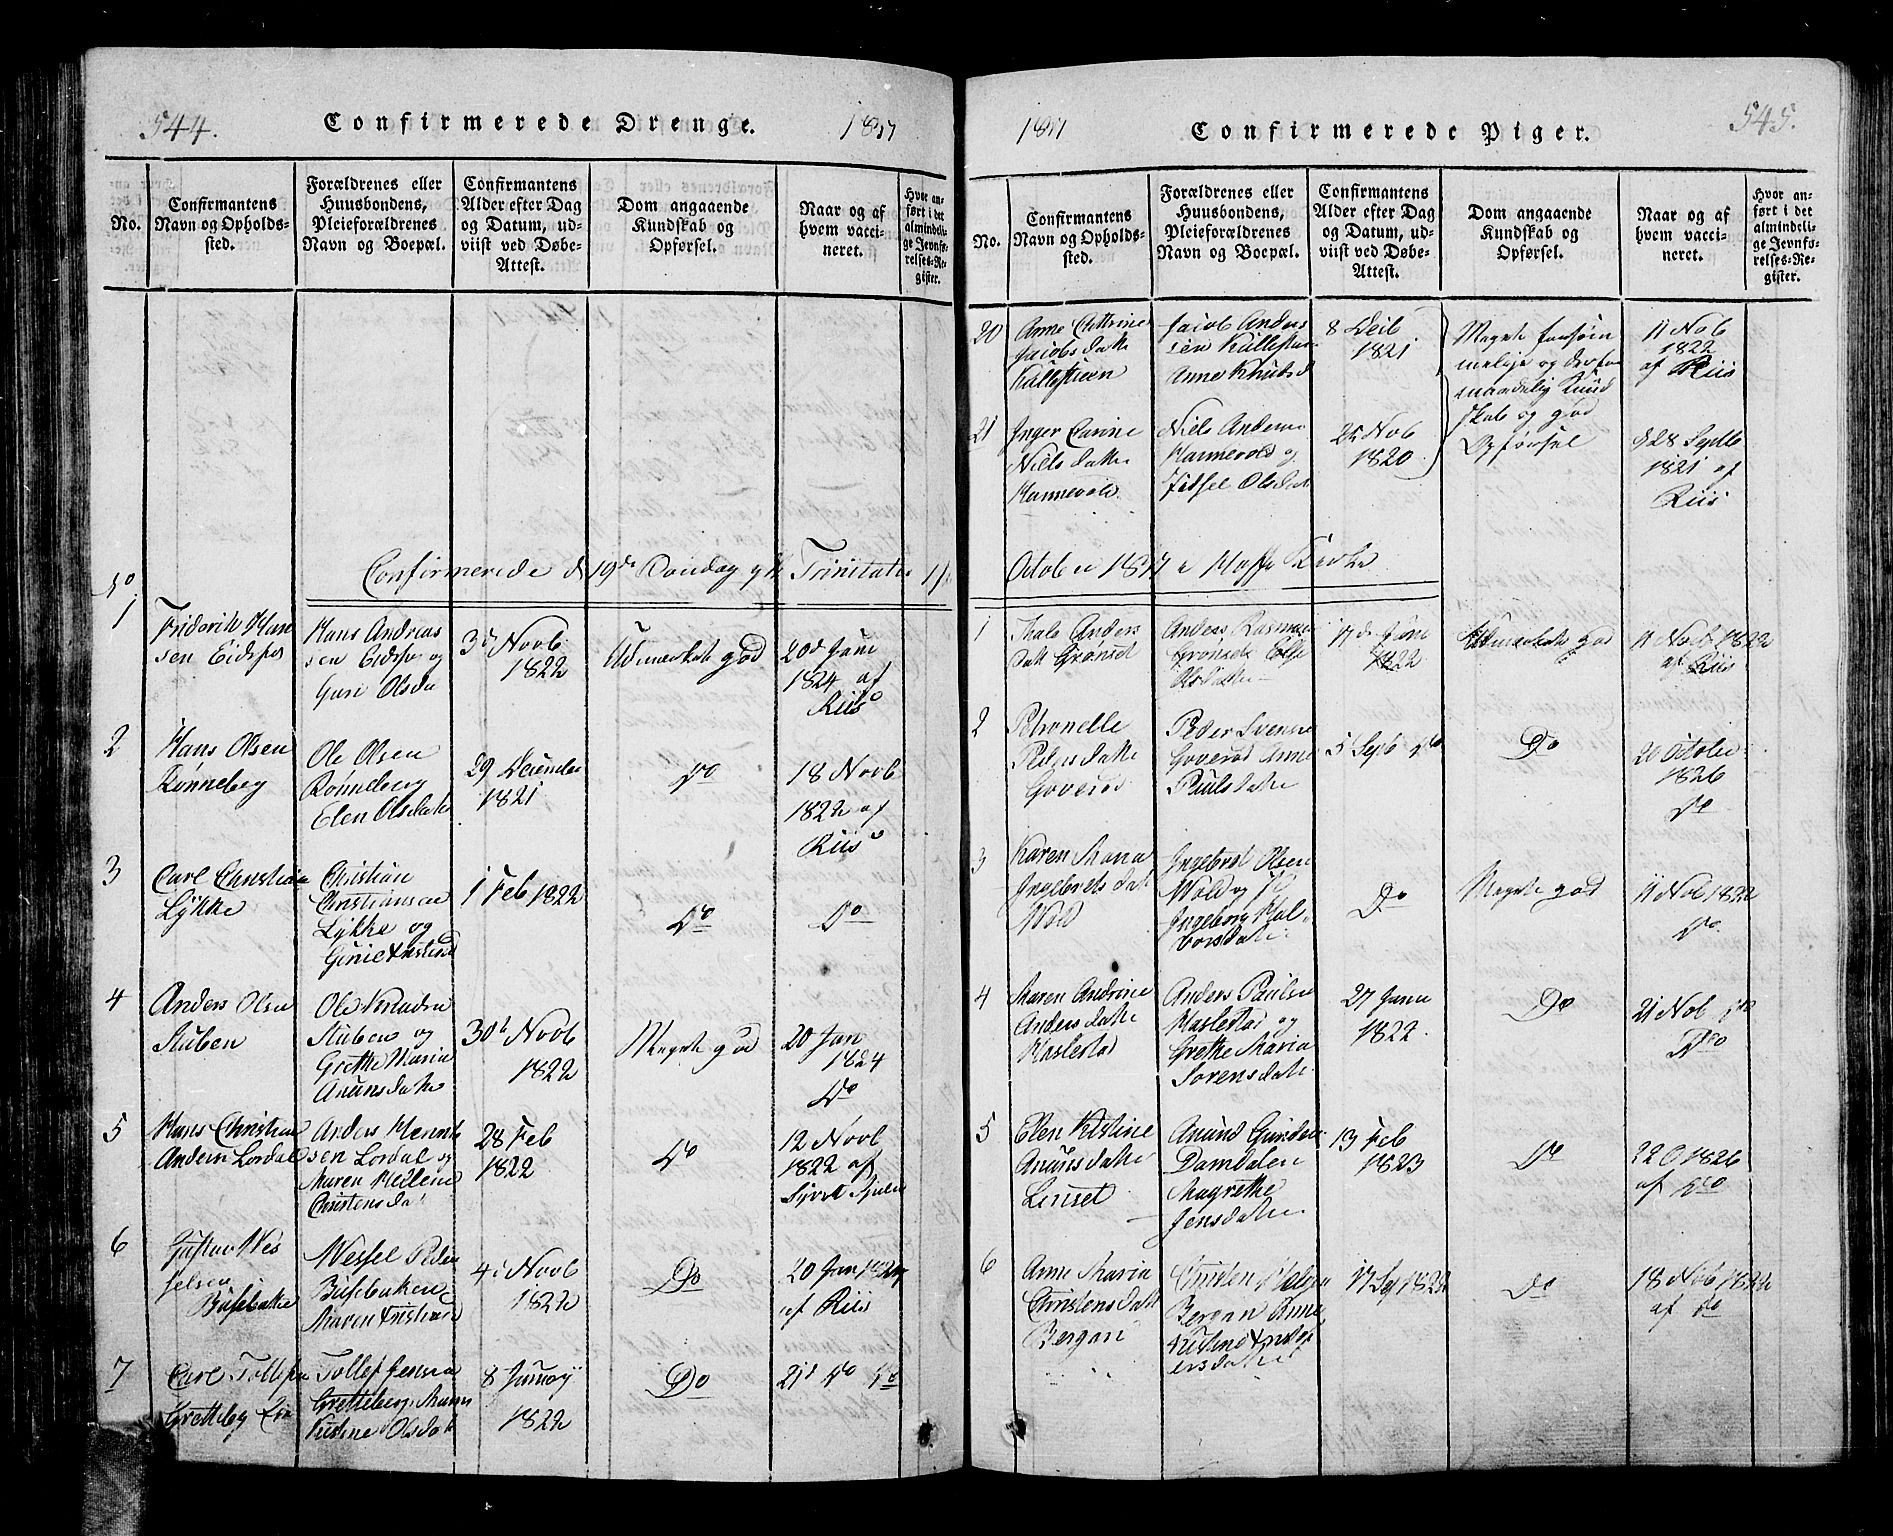 544.
Confirmerede Drenge.
18
No.
Confirmantens
Navn og Opholds-
sted.
Forældrenes eller
Huusbondens,
Pleieforældrenes
Navn og Boepæl.
Confirmantens
Alder efter Dag
og Datum, ud-
viist ved Døbe-
Attest.
Dom angaaende
Kundskab og
Opførsel.
Naar og af
hvem vacci-
neret.
Hvor an-
ført i det
almindeli-
ge Jevnfø-
relses-Re-
gister.
Confirmerede d 19de Søndag Trinitatis
1
Friderik Han
sen Eidsfos
Hans Andreas
sen Eidsfos og
Guri Olsda
3d Novb
1822
Udmærket god
20d Janu
1824 af
Riis
2
Hans Olsen
Rønneberg
Ole Olsen
Rønneberg
Elen Olsdatt
29 Decembe
1821
Do
18 Novb
1822 af
Riis
3
Carl Christian
Lykke
Christian
Christiansen
Lykke og
1 Feb 1822
Do
Do
4
Anders Olsen
Stuben
Ole Knudsen
Stuben og
Grethe Maria
Anunsdatte
30d Novb
1822
Meget god
20 Jan
1824
Do
5
Hans Christian
Anders Lordal
Anders
sen Lordal og
Maren Helene
Christensda
28 Feb
1822
Do
12 Novb
1822 af
6
Gustav Wes
selsen
Busebakke
Wessel Peder
Busebakken
Maren
4d Novb
1822
Do
20 Jan 1824
af Riis
7
Carl Tollefsen
Gretteberg
Tollef Jensen
Gretteberg, Maren
Kistine Olsdatt
8
1822
Do
21d Do Do
18
Confirmerede Piger.
545.
No.
Confirmantens
Navn og Opholds-
sted.
Forældrenes eller
Huusbondens,
Pleieforældrenes
Navn og Boepæl.
Confirmantens
Alder efter Dag
og Datum, ud-
viist ved Døbe-
Attest.
Dom angaaende
Kundskab og
Opførsel.
Naar og af
hvem vacci-
neret.
Hvor an-
ført i det
almindeli-
ge Jevnfø-
relses-Re-
gister.
20
Anne Cathrine
Jacobsdatte
Kullesteen
Jacob Anders
sen Kullesteen
Anne Knutsd
8 Decb
1821
Meget
melige og
maadelig Kund
skab og god
Opførsel
11 Nob
1822
af Riis
21
Inger Carine
Nielsdatte
Hannevold
Niels Anders
Hannevold og
Sidsel Olsdat
Nob
1820
28 Septb
1821 af
Riis
Octob Hoffs Kirke
1
Thale Anders
datt Grønset
Anders Rasmus
Grønset Else
Olsdatte
17 de Juni
1822
Udmærket god
11 Novb 1822
af Riis
2
Petronelle
Pedersdatte
Goverød
Peder Svense
Goverød Anne
Paulsdatte
5 Septb Do
Do
20 Octobe
1826
Do
3
Karen Maria
Ingebretsdatt
Wold
Ingebret Olsen
Wold og
Ingeborg Hal-
vorsdatte
Do
Meget god
11 Nob 1822
Do
4
Maren Andrine
Andersdatte
Haslestad
Anders Paulse
Haslestad og
Grethe Maria
Sørensdatte
27 Janu
1822
Do
21 Nob Do
Do
5
Elen Kistine
Anunsdatte
Linset
Anund Gunder
Damdalen
Magrethe
Jensdatte
13 Feb
1823
Do
22 O 1826
af Do
6
Anne Maria
Christensdatt
Bergan
Christen Helge
Bergan Anne
17 Sep 1822
Do
18 Nob 1822
af Do